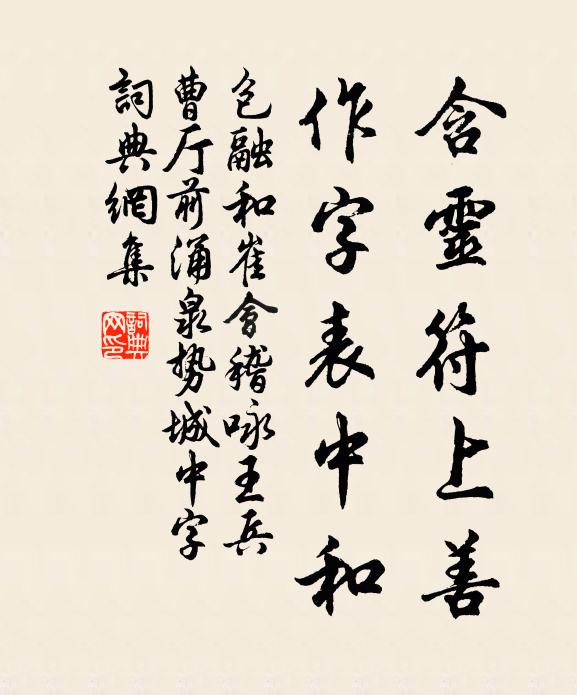 含靈符上善
作字表中和
包融和崔會稽咏王兵
曹厅前涌泉势城中字
詞典網集
詞典
网印